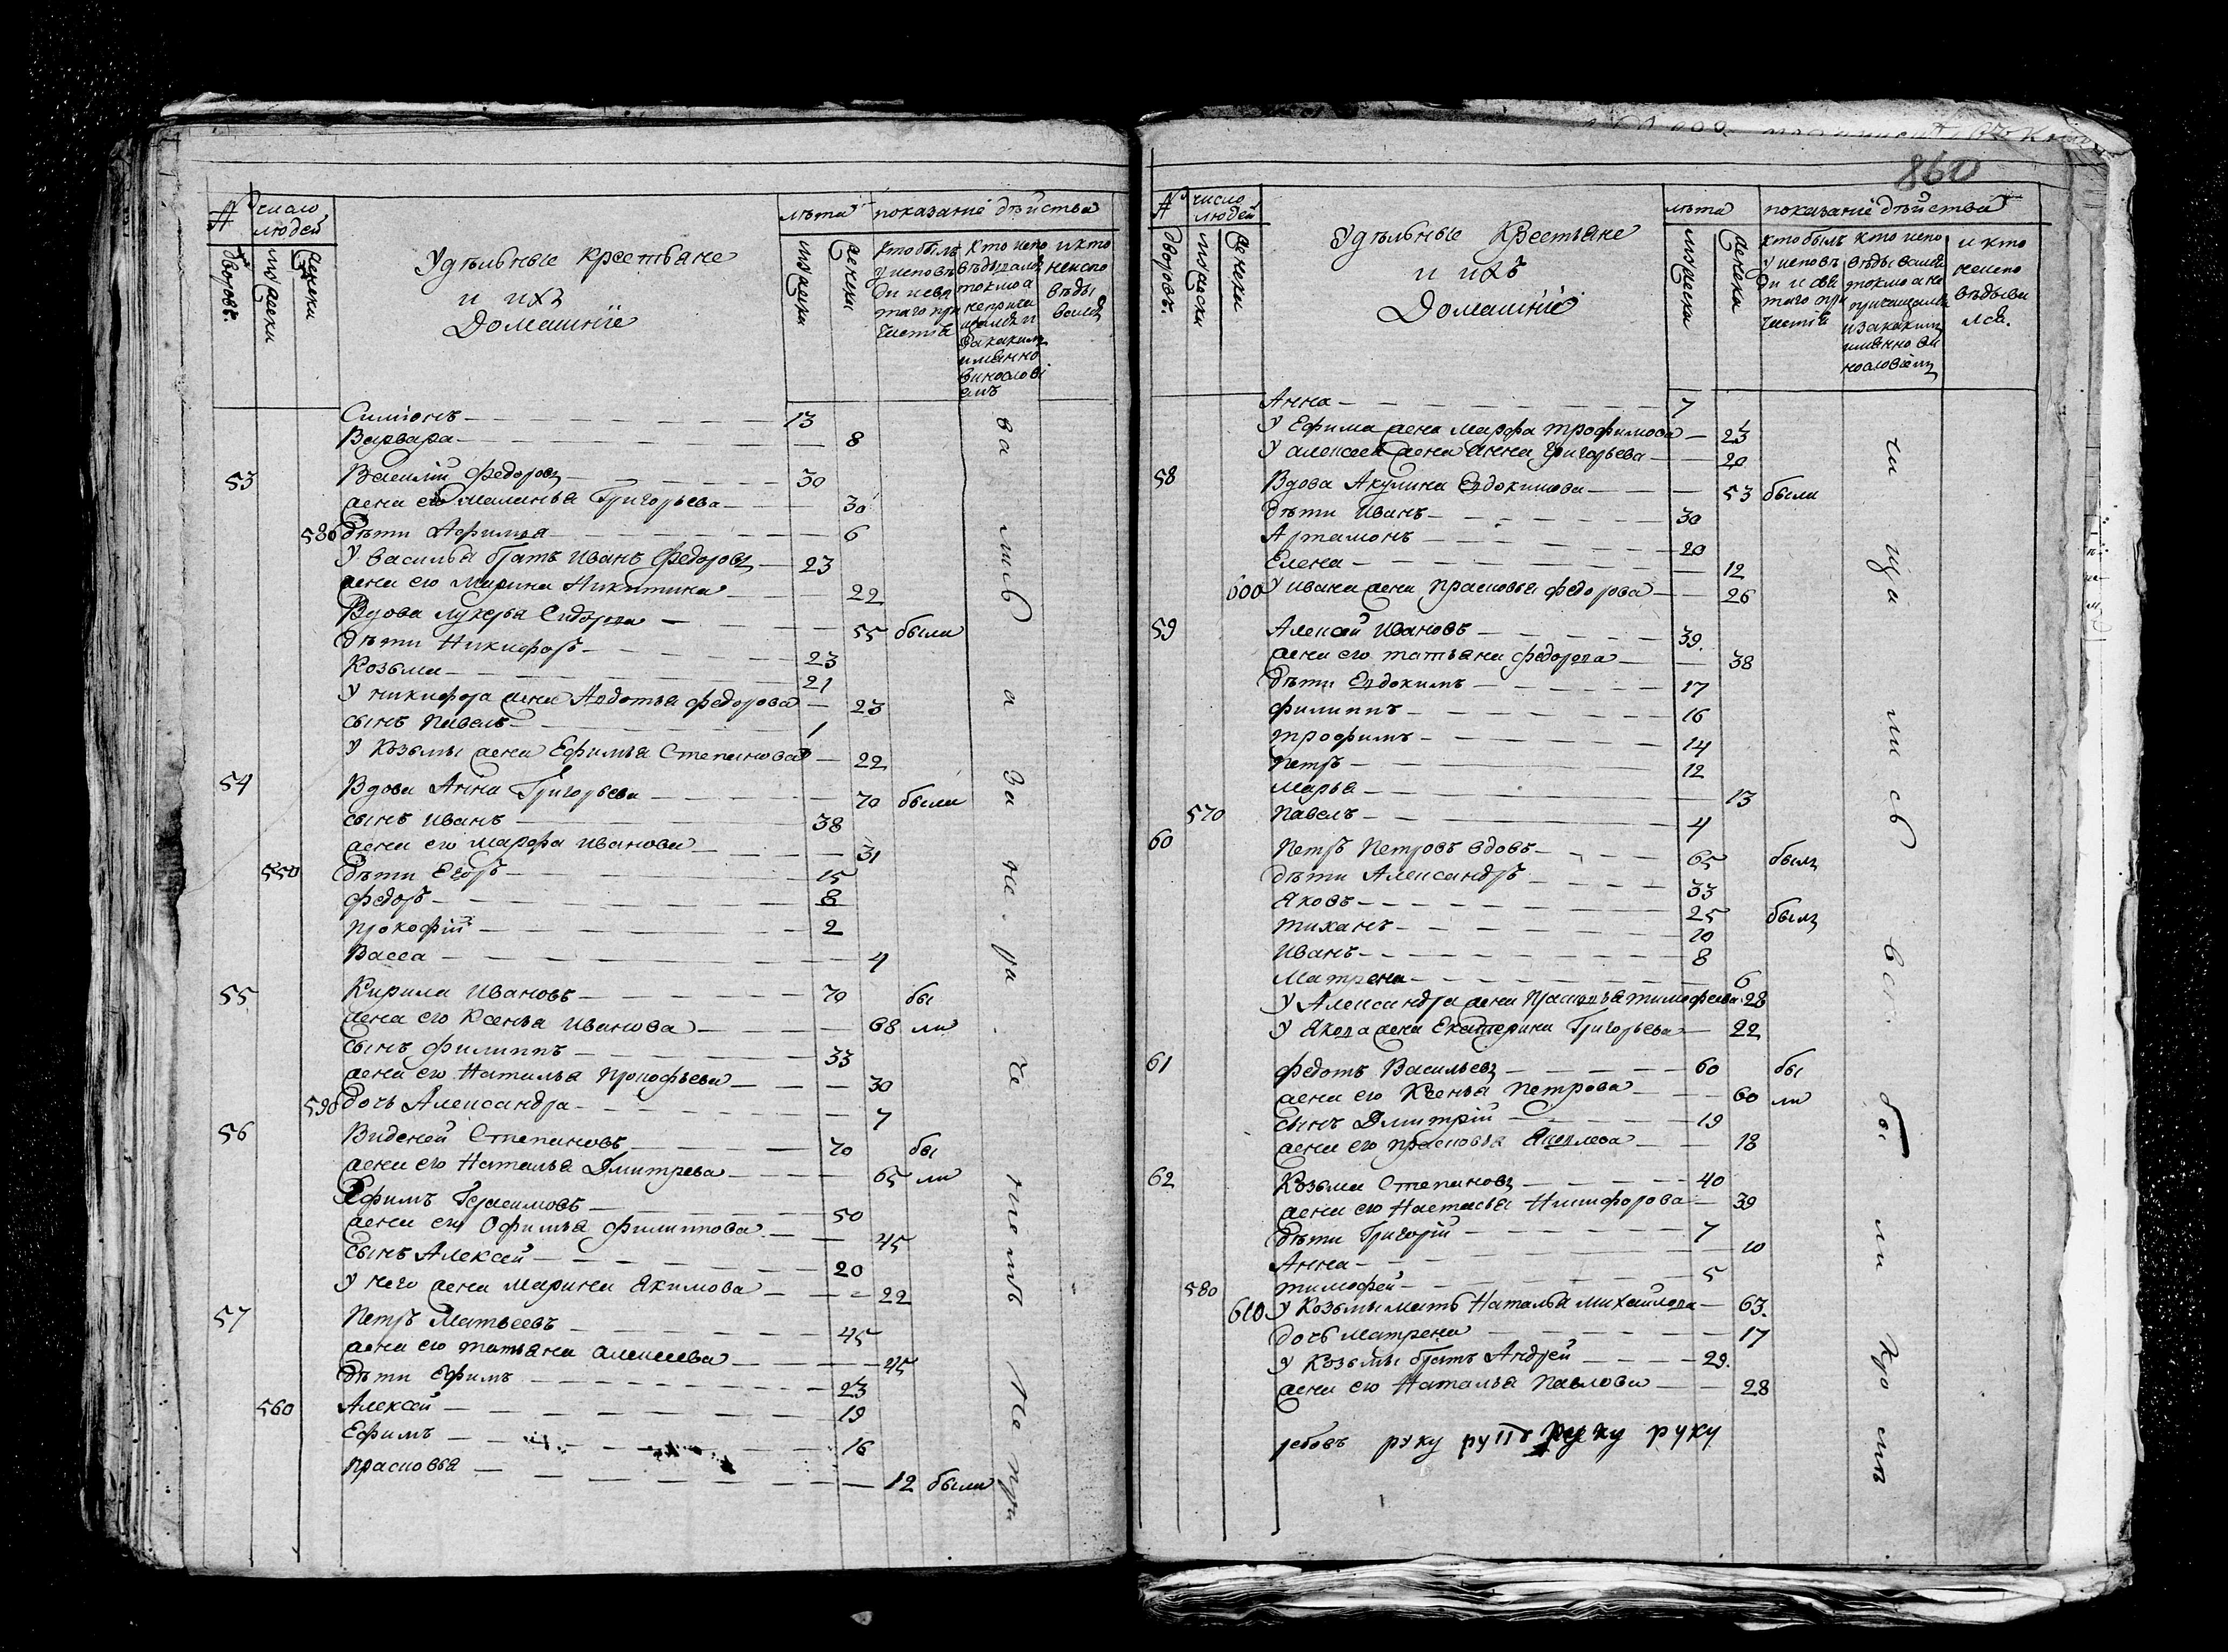 № число людей лѣта показаніе дѣйства
дворовъ. мужески женски
Удѣльные крестьяне
и ихъ
Домашніе
мужски женски
кто былъ у исповѣди и свя таго при частія
кто испо вѣдывался токмо а не прича щался и за какимъ имянно винослові емъ
и кто неиспо вѣды вался
Симіонъ 13
Варвара 8
53 Василій Федоровъ 30
жена его Маланья Григорьева 30
580 дѣти Афимья 6
У Василья братъ Иванъ Федоровъ 23
жена его Марина Никитина 22
Вдова лукерья Сидорова 55 были
дѣти Никифоръ 23
Козьма 21
У никифора жена Авдотья федорова 23
сынъ Павелъ 1
У Козьмы жена Ефимья Степанова 22
54 Вдова Анна Григорьева 70 были
сынъ Иванъ 38
жена его марфа иванова 31
550 дѣти Егоръ 15
федоръ 8
прокофій 2
Васса 4
55 Кирила Ивановъ 70 бы
жена его Ксенья Иванова 68 ли
сынъ филиппъ 33
жена его Наталья прокофьева 30
590 дочь Александра 7
56 Степановъ 70 бы
жена его Наталья Дмитрева 65 ли
Ефимъ Герасимовъ 50
жена его Офимья филиппова 45
сынъ Алексей 20
У него жена Марина Якимова 22
57 Петръ Матвеевъ 45
жена его татьяна алексеева 45
дѣти ефимъ 23
560 Алексей 19
Ефимъ 16
прасковья 12 были
ва лись а За не. ра. че ніемъ Не при
860
№ число людей лѣта показаніе дѣйства
дворовъ. мужески женски
Удѣльные Крестьяне
и ихъ
Домашніе
мужеска женска
кто былъ у исповѣ ди и свя таго при частія
кто испо вѣдывался токмо а не причащался и за какимъ имянно ви нословіемъ
и кто неиспо вѣдыва лся.
Анна 7
У Ефима жена марфа трофимова 23
У алексея жена анна григорьева 20
58 Вдова Акулина Евдокимова 53 были
дѣти Иванъ 30
Артамонъ 20
Елена 12
600 У ивана жена прасковья федорова 26
59 Алексей Ивановъ 39.
жена его татьяна федорова 38
дѣти Евдокимъ 17
филиппъ 16
трофимъ 14
петръ 12
марья 13
570 павелъ 4
60 Петръ Петровъ вдовъ 65 былъ
дѣти Александръ 33
Яковъ 25 былъ
тиханъ 10
Иванъ 8
Матрена 6
У Александра жена прасковья тимофеева 28
У Якова жена Екатерина Григорьева 22
61 федотъ Васильевъ 60 бы
жена его Ксенья Петрова 60 ли
сынъ Дмитрій 19
жена его прасковья Яковлева 18
62 Козьма Степановъ 40
жена его Настасья Никифорова 39
дѣти Григорій 7
Анна 10
580 тимофей 5
610 У Козьмы мать Наталья михайлова 63.
дочь матрена 17
У Козьмы братъ Андрей 29.
жена его Наталья павлова 28
руку руку руку
ча ща ли сь все. бы ли кро мѣ